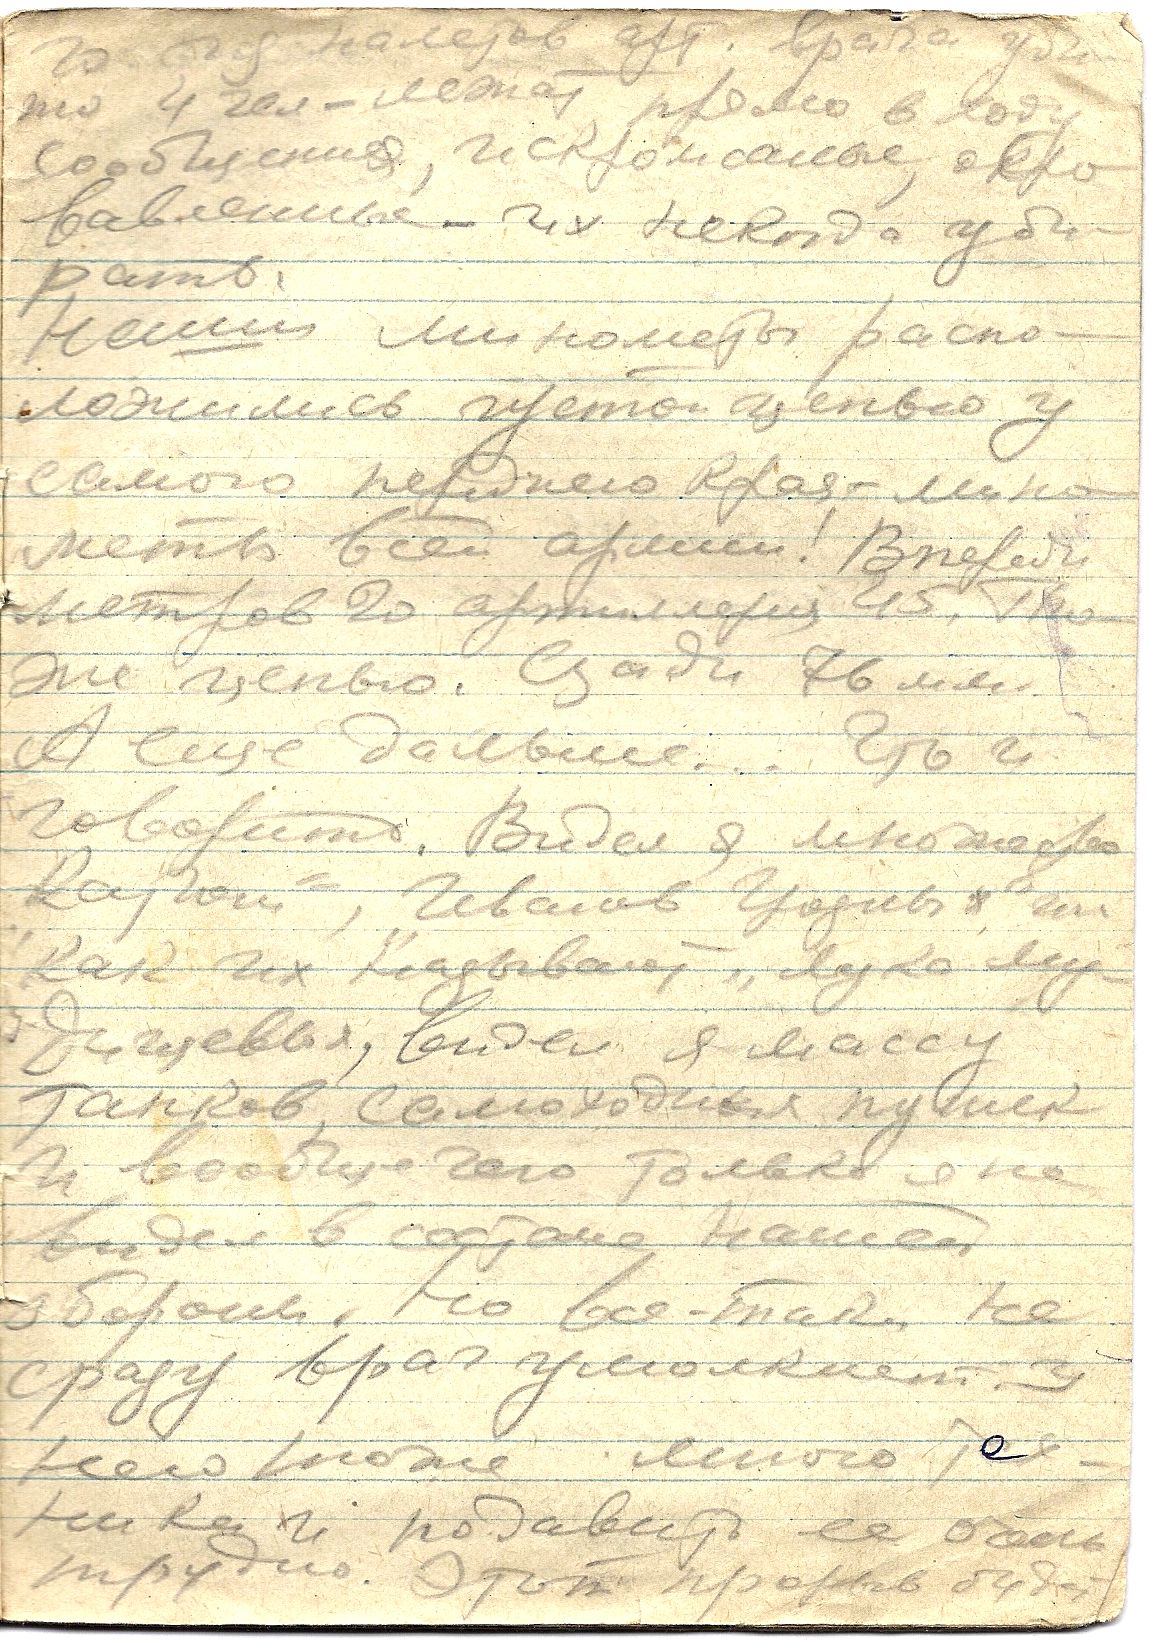 налетов арт. врага уби-
то 4 чел – лежат прямо в ходу
сообщения, искромсаные, окро-
вавленные – их некогда уби-
рать.
Наши минометы распо-
ложились густой цепью у
самого переднего края – мино-
меты всей армии! Впереди
метров 20 артиллерия 45. То-
же цепью. Сзади 76 мм.
А еще дальше... Что и
говорить. Видел я множество
"Катюш", "Иванов Грозных" или
как их называют „Лука Му-
дищевых, видел я массу
танков, самоходных пушек
и вообще чего только я не
видел в составе нашей
обороны. Но все-таки не
сразу враг умолкнет. У
него тоже много тех-
ники и подавить ее очень
трудно. Этот прорыв будет